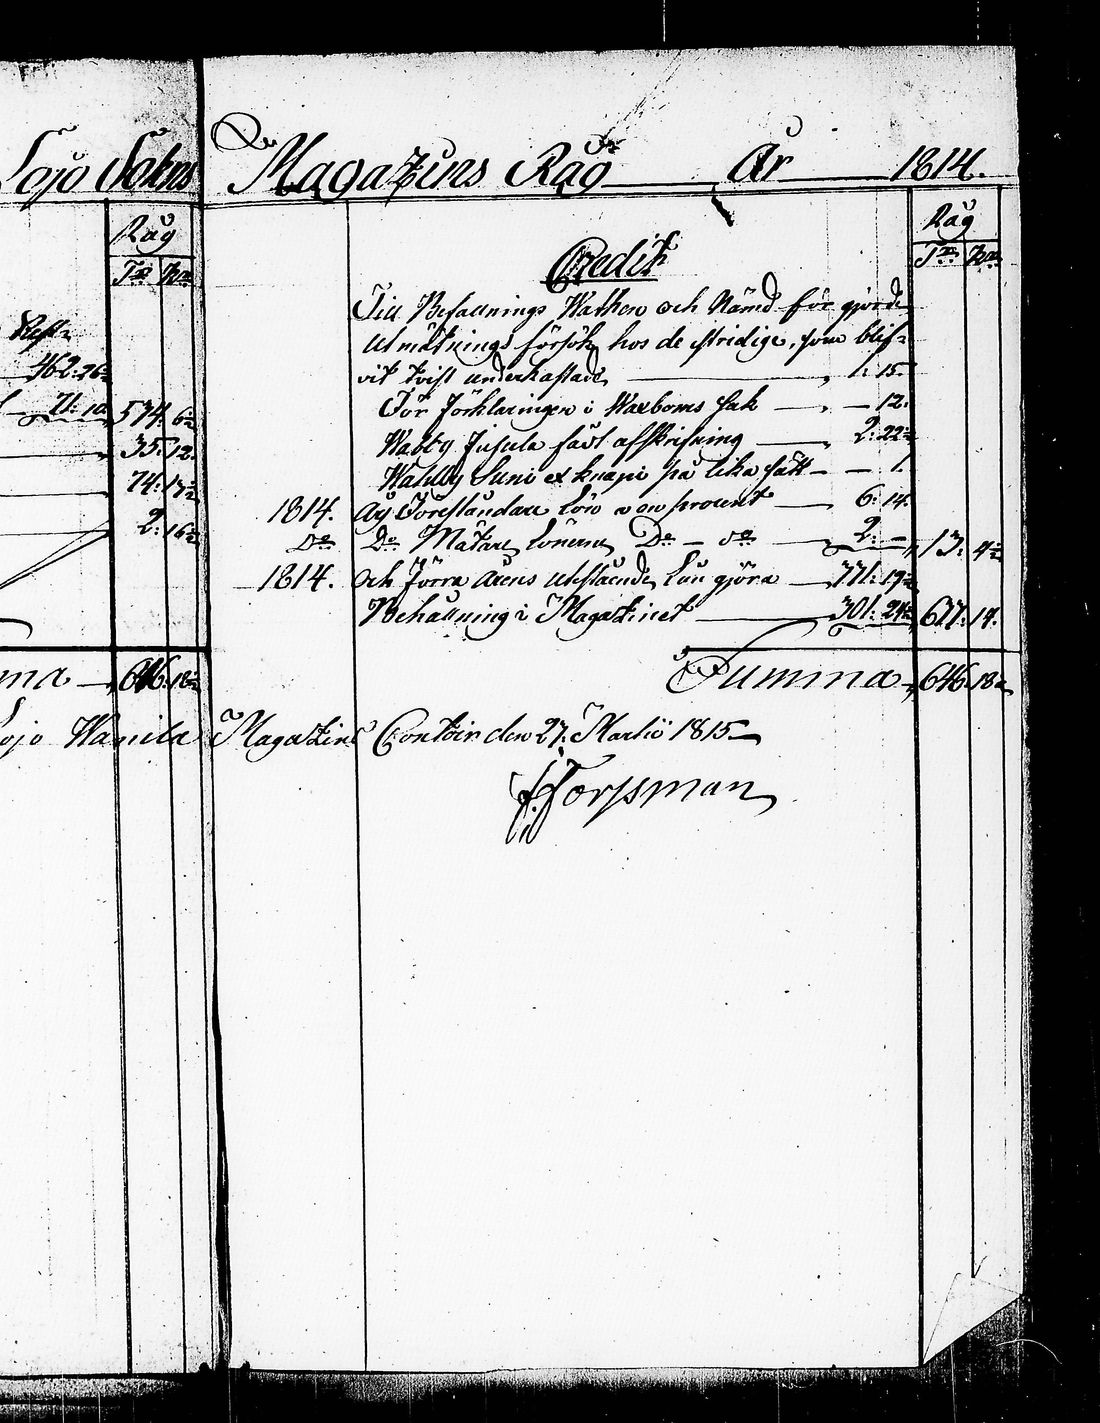 Lojo Sokns Magazins Råg År 1814.
Råg
Tr Kr
Rest
462: 26
71: 10 574: 6½
35: 12.
74: 17½
2: 16½
646: 18½
Råg
Tr Kr
Credit
Till Befallnings och Nämd för gjorde
Utmätnings försök hos de stridige, som blif-
vit tvist underkastade 1: 15.
För Förklaringen i Waxboms sak — 12.
Wabby Jusula afskrifning 2: 22½
Wahlby Suni ex knapi på lika sätt — 1.
1814. Åhrs Föreståndare Lön procent 6: 14.
Do Do Mätare Lönerne Do — do 2: —
13: 4½
1814. och Förra årens Utestående Lån gjöra 331: 19½
Behållning i Magazinet 301: 24½ 633: 14.
Summa 646: 18½
Lojo Wanila Magazins Contoir den 27. Martii 1815
F. Forssman